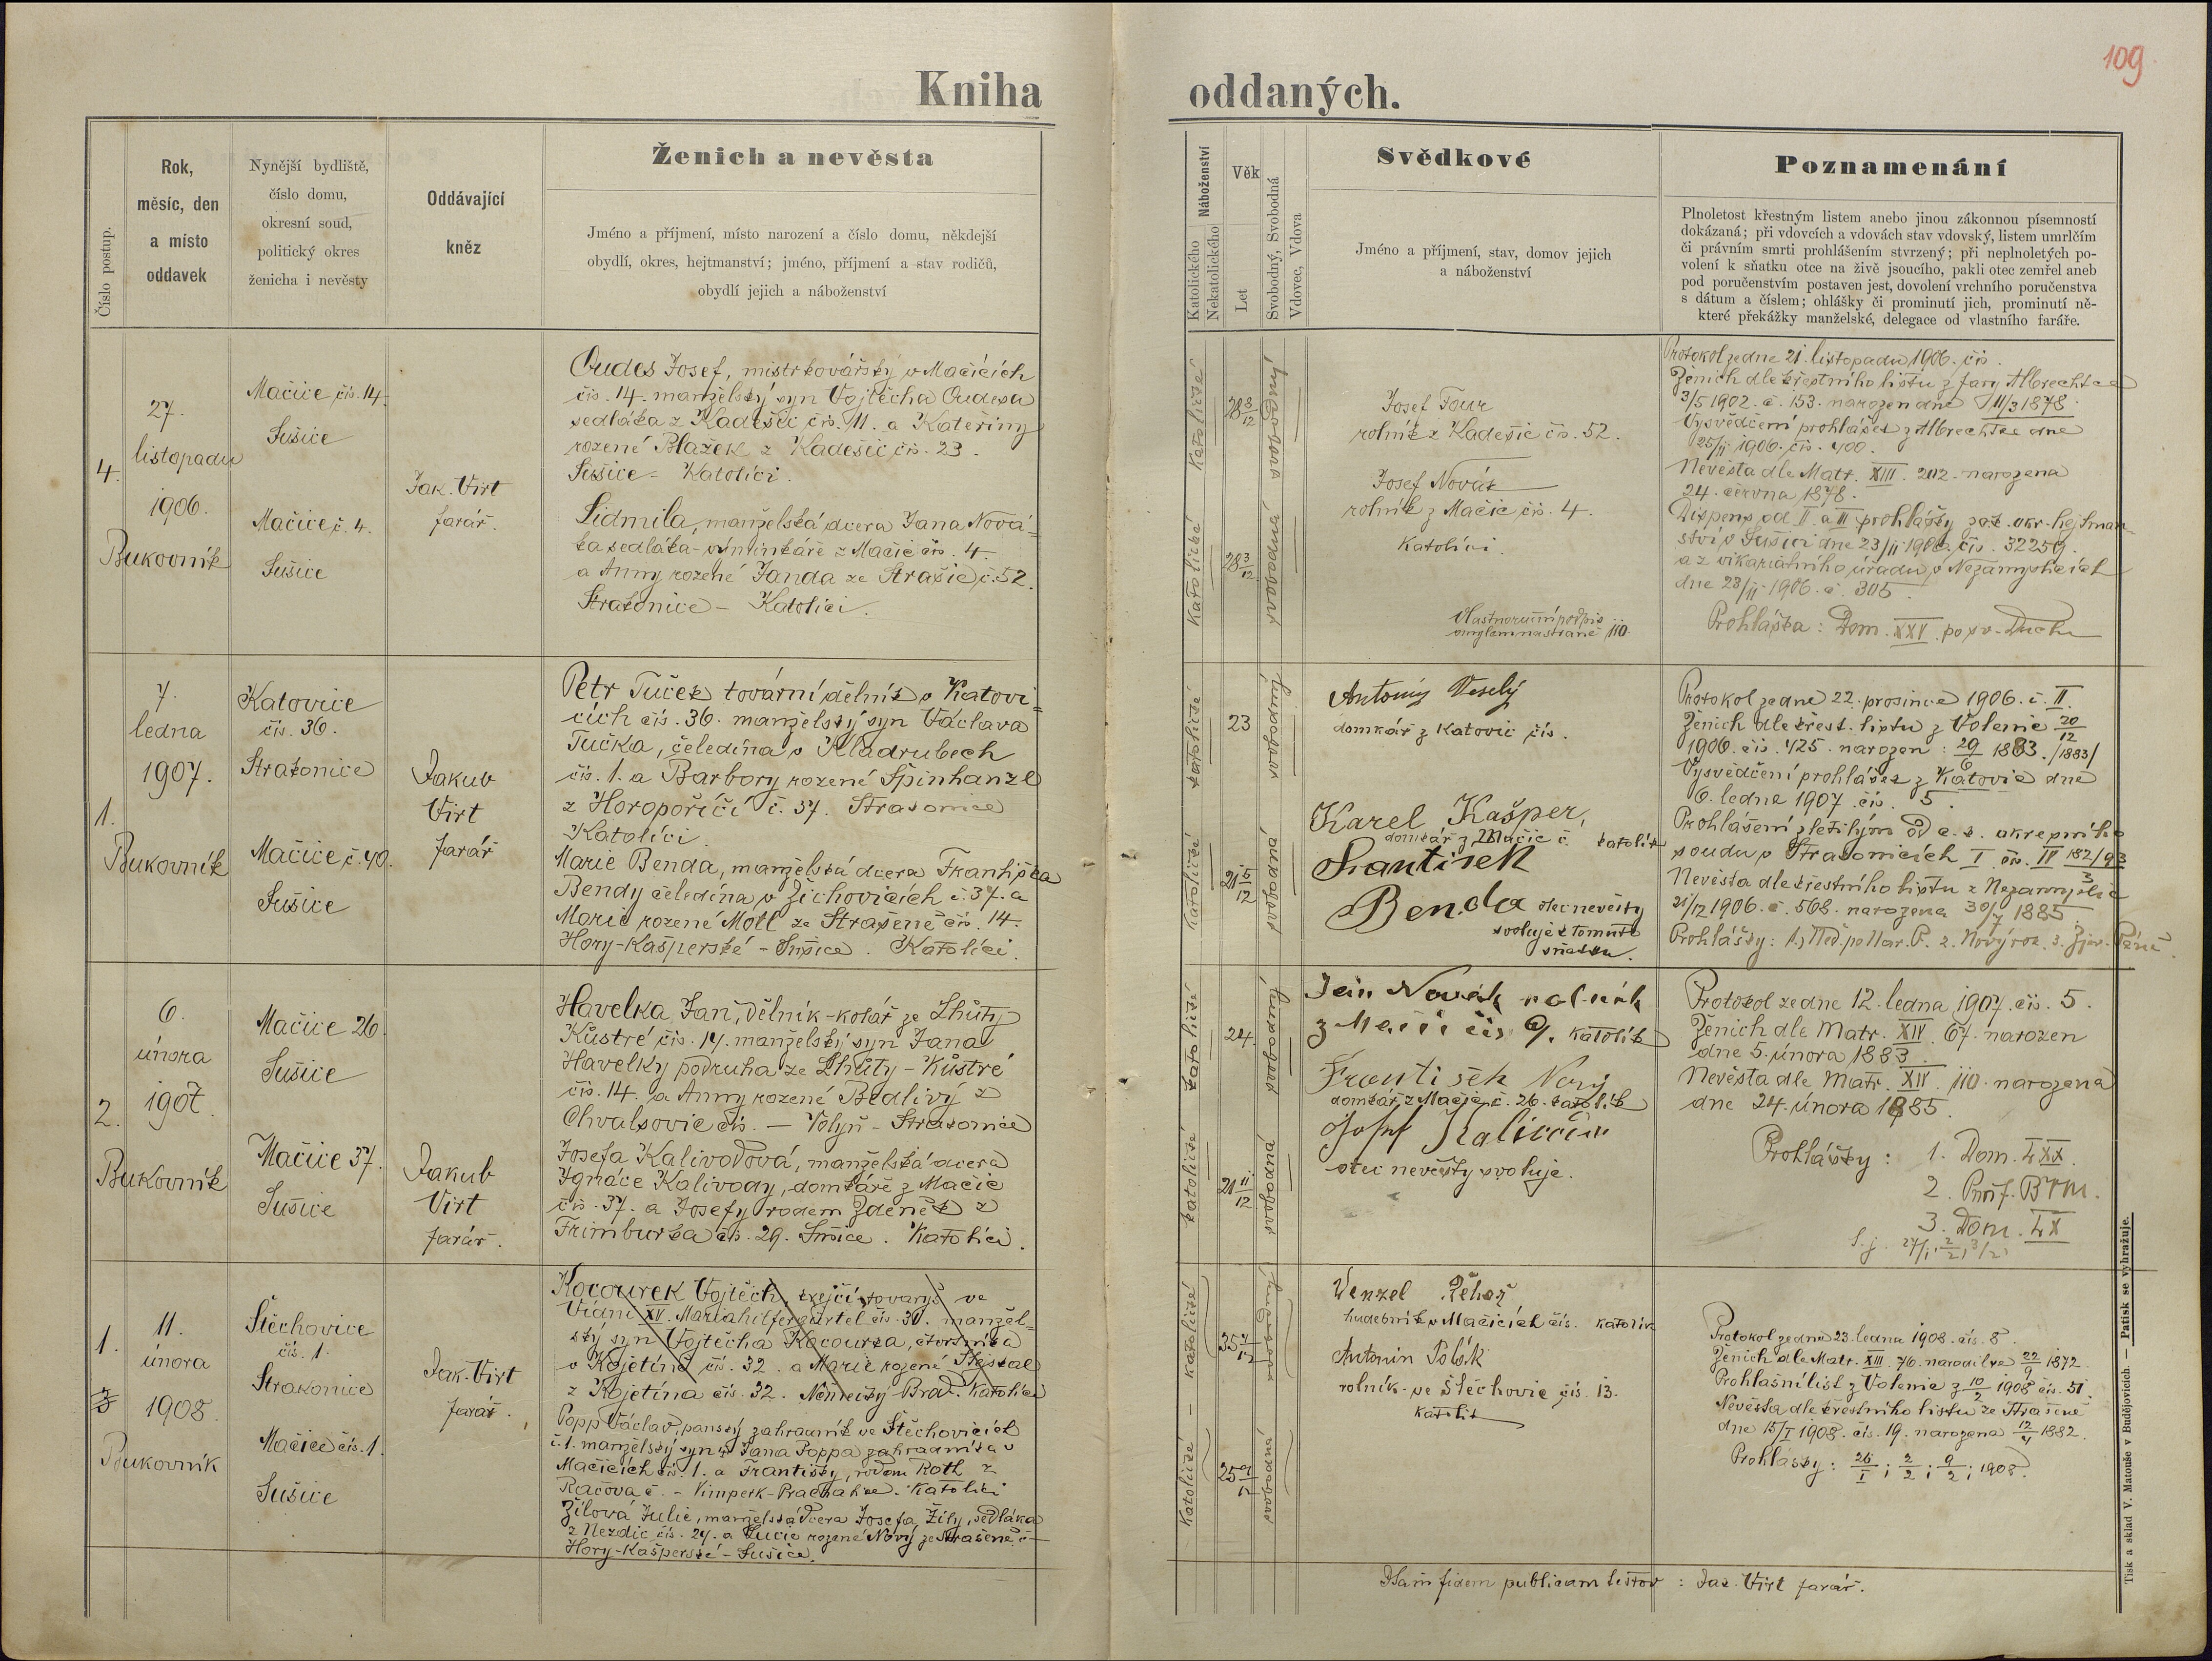 109
Kniha oddaných.
Číslo postup.
Rok, měsíc, den a místo oddavek
Nynější bydliště, číslo domu, okresní soud, politický okres ženicha i nevěsty
Oddávající kněz
Ženich a nevěsta
Jméno a příjmení, místo narození a číslo domu, někdejší
obydlí, okres, hejtmanství; jméno, příjmení a stav rodičů,
obydlí jejich a náboženství
Náboženství
Katolického
Nekatolického
Věk
Let
Svobodný, Svobodná
Vdovec, Vdova
Svědkové
Jméno a příjmení, stav, domov jejich
a náboženství
Poznamenání
Plnoletost křestným listem anebo jinou zákonnou písemností
dokázaná; při vdovcích a vdovách stav vdovský, listem umrlčím
či právním smrti prohlášením stvrzený; při neplnoletých po-
volení k sňatku otce na živě jsoucího, pakli otec zemřel aneb
pod poručenstvím postaven jest, dovolení vrchního poručenstva
s dátum a číslem; ohlášky či prominutí jich, prominutí ně-
které překážky manželské, delegace od vlastního faráře.
4.
27.
listopadu
1906.
Bukovník
Mačice čís. 14.
Sušice
Mačice č. 4.
Sušice
Jak. Virt
farář.
Oudes Josef, mistr kovářský v Mačicích
čís. 14. manželský syn Vojtěcha Oudesa
sedláka z Kadešic čís. 11. a Kateřiny
rozené Blažek z Kadešic čís. 23.
Sušice - Katolíci.
Lidmila, manželská dcera Jana Nová-
ka sedláka - výminkáře z Mačic čís. 4.
a Anny rozené Janda ze Strašic č. 52.
Strakonice - Katolíci.
katolické
28 3/12
katolické
28 3/12
svobodná
Josef Four
rolník z Kadešic čís. 52.
Josef Novák
rolník z Mačic čís. 4.
Katolíci.
Vlastnoruční podpis
omylem na straně 110.
Protokol ze dne 21. listopadu 1906. čís.
Ženich dle křestního listu z fary Albrechtce
3/5 1902. č. 153. narozen dne 11/3 1878.
Vysvědčení prohlášek z Albrechtce dne
25/11 1906. čís. 400.
Nevěsta dle Matr. XIII. 202. narozena
24. června 1878.
Dispens od II. a III prohlášky c. k. okr. hejtman-
ství v Sušici dne 23/11 1906. čís. 32259.
a z vikariátního úřadu v Nezamyslicích
dne 23/11 1906. č. 305.
Prohláška: Dom. XXV. po sv. Duchu
1.
7.
ledna
1907.
Bukovník
Katovice
čís. 36.
Strakonice
Mačice č. 40.
Sušice
Jakub
Virt
farář
Petr Tuček tovární dělník v Katovi-
cích čís. 36. manželský syn Václava
Tučka, čeledína v Kladrubech
čís. 1. a Barbory rozené Špinhanzl
z Horopoříčí č. 37. Strakonice
Katolíci.
Marie Benda, manželská dcera Františka
Bendy čeledína v Žichovicích č. 37. a
Marie rozené Moll ze Strašeně čís. 14.
Hory-Kašperské - Sušice. Katolíci.
katolické
23
katolické
21 5/12
svobodná
Antoniy Veselý
domkář z Katovic čís.
Karel Kašper,
domkář z Mačic č. katolík
František
Benda otec nevěsty
svoluje k tomuto
sňatku.
Protokol ze dne 22. prosince 1906. č. II.
Ženich dle křest. listu z Volenic 20/12
1906. čís. 425. narozen: 29/6 1883. /1883/
Vysvědčení prohlášek z Katovic dne
6. ledna 1907. čís. 5.
Prohlášení zletilým od c. k. okresního
soudu v Strakonicích I čís. IV 182/93
Nevěsta dle křestního listu z Nezamyslic
21/12 1906. č. 568. narozena 30/7 1885.
Prohlášky: 1.) Ned. po Nar. P. 2. Nový rok. 3. Zjev. Páně
2.
6.
února
1907.
Bukovník
Mačice 26.
Sušice
Mačice 37.
Sušice
Jakub
Virt
farář.
Havelka Jan, dělník-kolář ze Lhůty
Kůstré čís. 14. manželský syn Jana
Havelky podruha ze Lhůty - Kůstré
čís. 14. a Anny rozené Bedlivý z
Chvalšovic čís. — Volyň - Strakonice
Josefa Kalivodová, manželská dcera
Ignáce Kalivody, domkáře z Mačic
čís. 37. a Josefy rodem Zdeněk z
Frimburka čís. 29. Sušice. Katolíci.
katolické
24.
katolické
21 11/12
svobodná
Jan Novák rolník
z Mačic čís 9. katolík
František Nový
domkář z Mačic č. 26. katolík
otec nevěsty svoluje.
Protokol ze dne 12. ledna 1907. čís. 5.
Ženich dle Matr. XIV. 67. narozen
dne 5. února 1883.
Nevěsta dle Matr. XIV. 110. narozena
dne 24. února 1885.
Prohlášky: 1. Dom. LXX.
2. Purif. B. V. M.
3. Dom. LX
1.
3
11.
února
1908.
Bukovník
Štěchovice
čís. 1.
Strakonice
Mačice čís. 1.
Sušice
Jak. Virt
farář.
Kocourek Vojtěch, krejčí tovaryš ve
Vídni XV. Mariahilfergürtel čís. 31. manžel-
ský syn Vojtěcha Kocourka, čtvrtníka
v Kojetíně čís. 32. a Marie rozené
z Kojetína čís. 32. Německý Brod. katolíci
Popp Václav, panský zahradník ve Štěchovicích
č. 1. manželský syn Jana Poppa zahradníka v
Mačicích čís. 1. a Františky, rodem Roth z
Račova č. - Vimperk-Prachatice. Katolíci
Žílová Julie, manželská dcera Josefa Žíly, sedláka
z Nezdic čís. 24. a Lucie rozené Nový ze Strašeně č.
Hory-Kašperské - Sušice.
Katolické - Katolické
25 9/12
Wenzel Pěhaž
hudebník v Mačicích čís. katolík
Antonín Polák
rolník ve Štěchovic čís. 13.
katolík
Protokol ze dne 23. ledna 1908. čís. 8.
Ženich dle Matr. XIII. 76. narodil se 22/9 1872.
Prohlašní list z Volenic z 10/2 1908 čís. 51.
Nevěsta dle křestního listu ze Strašeně
dne 15/I 1908. čís. 19. narozena 12/4 1882.
Prohlášky: 26/I; 2/2; 9/2; 1908.
Ad fidem publicam testor: Jak. Virt farář.
Tisk a sklad V. Matouše v Budějovicích. — Patisk se vyhražuje.